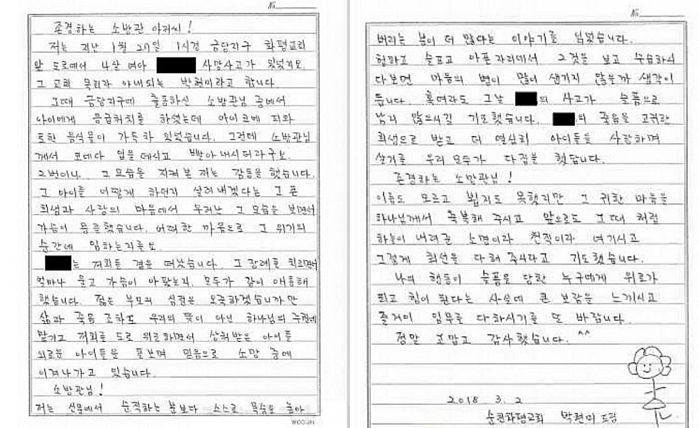 No.
존경하는 소방관 아저씨!
저는 지난 1월 20일 1시경 금당지구 화평교회
앞 도로에서 4살 여아 사망사고가 있었지요.
그 교회 목회자 아내되는 박현미라고 합니다
그때 금당지구에 출동하신 소방관님 중에서
아이에게 응급처치를 하셨는데 아이코에 피와
토한 음식물이 가득차 있었습니다. 그런데 소방관님
께서 코에다 입을 대시고 빨아내시더라구요.
2번이나.. 그 모습을 지켜본 저는 감동을 했습니다.
그 아이를 어떻게 하던지 살려내겠다는 그
희생과 사랑의 마음에서 우러난 그 모습을 보면서
가슴이 뭉클했습니다. 어떠한 마음으로 그 위기의
순간에 임하는지를요
는 저희들 곁을 떠났습니다. 그 장례를 치르면서
얼마나 울고 가슴이 아팠는지. 모두가 같이 애통해
했습니다. 젊은 부모의 심정은 오죽하겠습니까만
삶과 죽음 조차도 우리의 뜻이 아닌 하나님의 주권에
맡기고 저희들도 위로하면서 상처받은 아이들
외로운 아이들을 돌보며 믿음으로 소망 중에
이겨나가고 있습니다.
소방관님!
저는 신문에서 순직하는 분보다 스스로 목숨을 놓아
WOO-JIN
No.
버리는 분이 더 많다는 이야기를 읽었습니다.
험하고 슬프고 아픈자리에서 그것을 보고 수습하시
다보면 마음의 병이 많이 생기지 않을까 생각이
듭니다. 혹여라도 그날 의 사고가 슬픔으로
남지 않으시길 기도했습니다. 의 죽음을 고귀한
희생으로 받고 더 열심히 아이들을 사랑하며
살기를 우리 모두가 다짐을 했답니다.
존경하는 소방관님!
이름도 모르고 뵙지도 못했지만 그 귀한 마음을
하나님께서 축복해 주시고 앞으로도 그때 처럼
하늘이 내려준 소명이라 천직이라 여기시고
그렇게 최선을 다해 주시라고 기도했습니다.
나의 행동이 슬픔을 당한 누구에게 위로가
되고 힘이 된다는 사실에 큰 보람을 느끼시고
즐거이 임무를 다하시기를 또 바랍니다.
정말 고맙고 감사했습니다. ^^
2018. 3. 2
순천화평교회 박현미 드림